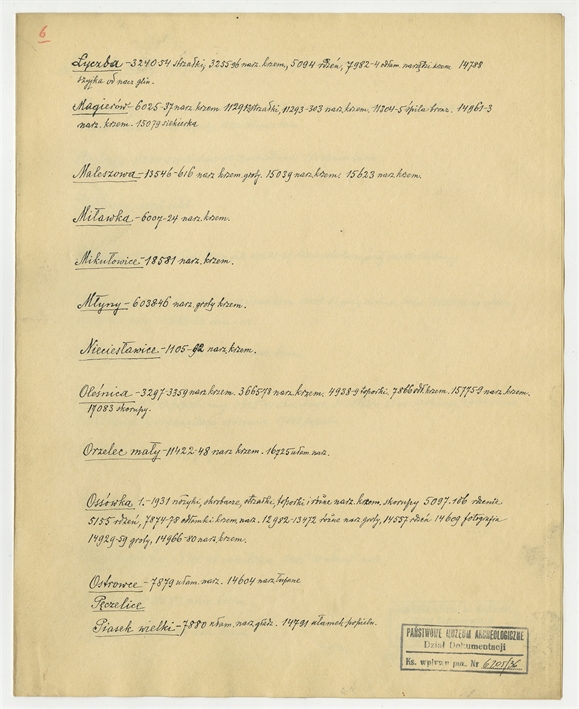 6
Łyczba - 3240-54 strzałki, 3255-96 narz. krzem., 5094 rdzeń, 7982-4 odłam. narzędzi krzem. 14788
szyjka od nacz. glin.
Magierów - 6025-37 narz. krzem. strzałki, 11293-303 narz. krzem. 11304-5 szpila bronz. 14961-3
narz. krzem. 15079 siekierka
Maleszowa - 13546-616 narz. krzem. groty. 15039 narz. krzem. 15623 narz. krzem.
Miławka - 6007-24 narz. krzem.
Mikułowice - 18581 narz. krzem.
Młyny - 603846 narz. groty krzem.
Nieciesławice - 1105-92 narz. krzem.
Oleśnica - 3297-3359 narz. krzem. 3665-78 narz. krzem. 4938-9 toporki, 7866 odł. krzem. 15775-9 narz. krzem.
17083 skorupy.
Orzelec mały - 11422-48 narz. krzem. 16725 ułam. nacz.
Ossówka 1.-1931 nożyki, skrobacze, strzałki, toporki i różne narz. krzem. skorupy 5097-106 rdzenie
5155 rdzeń, 7874-78 odłamki krzem. nacz. 12982-13472 różne narz. groty, 14557 rdzeń 14609 fotografia
14929-59 groty, 14966-80 narz. krzem.
Ostrowce - 7879 ułam. narz. 14604 narz. łupane
Pęczelice
Piasek wielki - 7880 ułam. narz. gładz. 14791 ułamek popieln.
PAŃSTWOWE MUZEUM ARCHEOLOGICZNE
Dział Dokumentacji
Ks. wpływu poz. Nr 6205/36